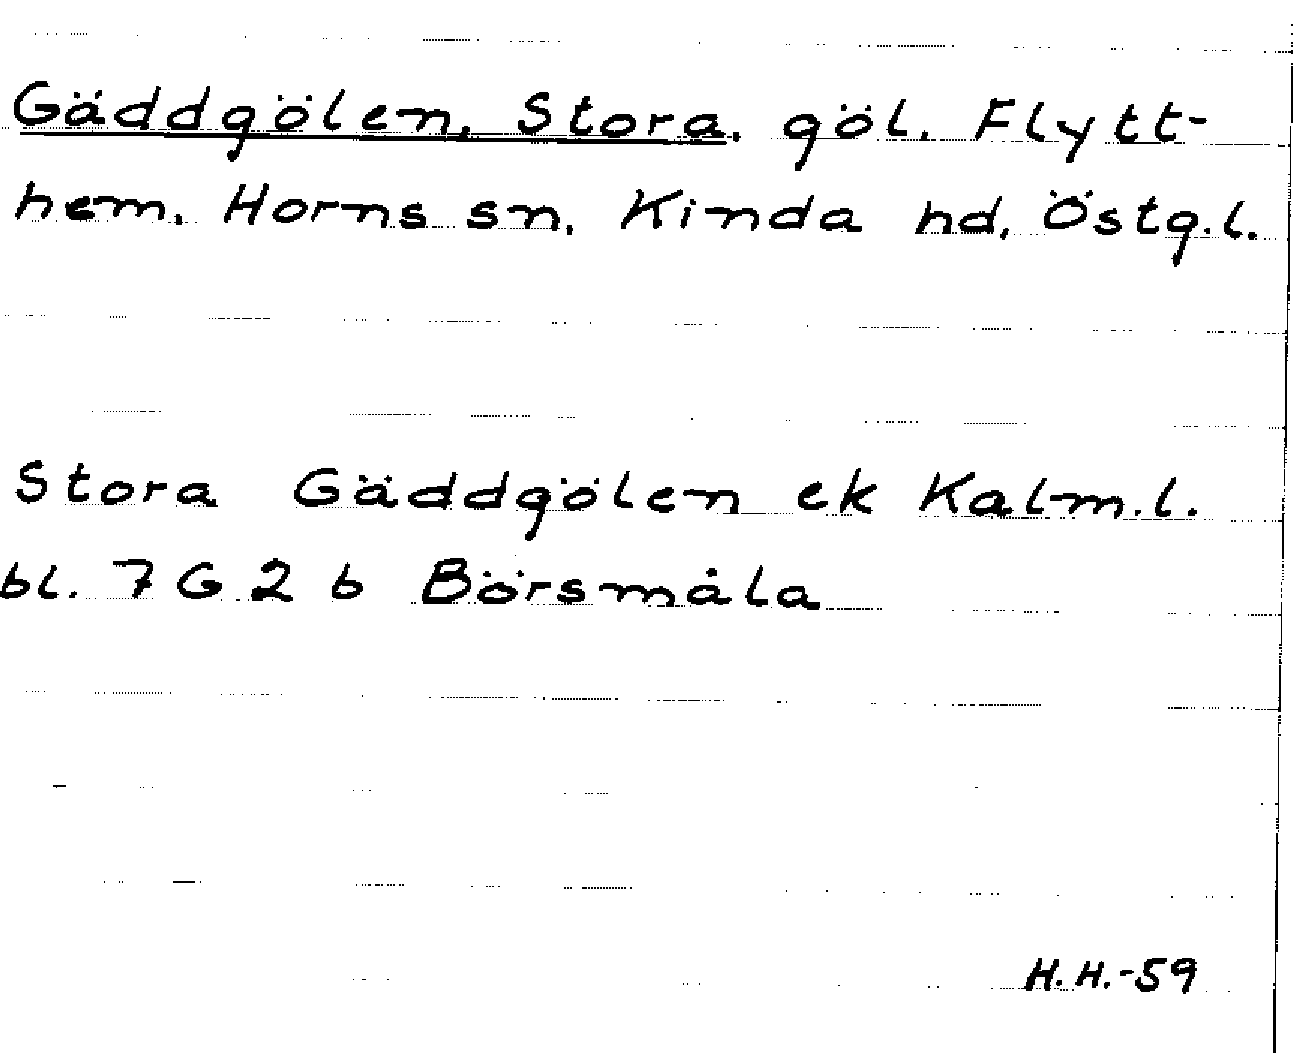 Gäddgölen, Stora, göl, Flytt-
hem, Horns sn, Kinda hd, Östg.l.
Stora Gäddgölen ek Kalm.l.
bl. 7 G 2 b Börsmåla
H.H.-59